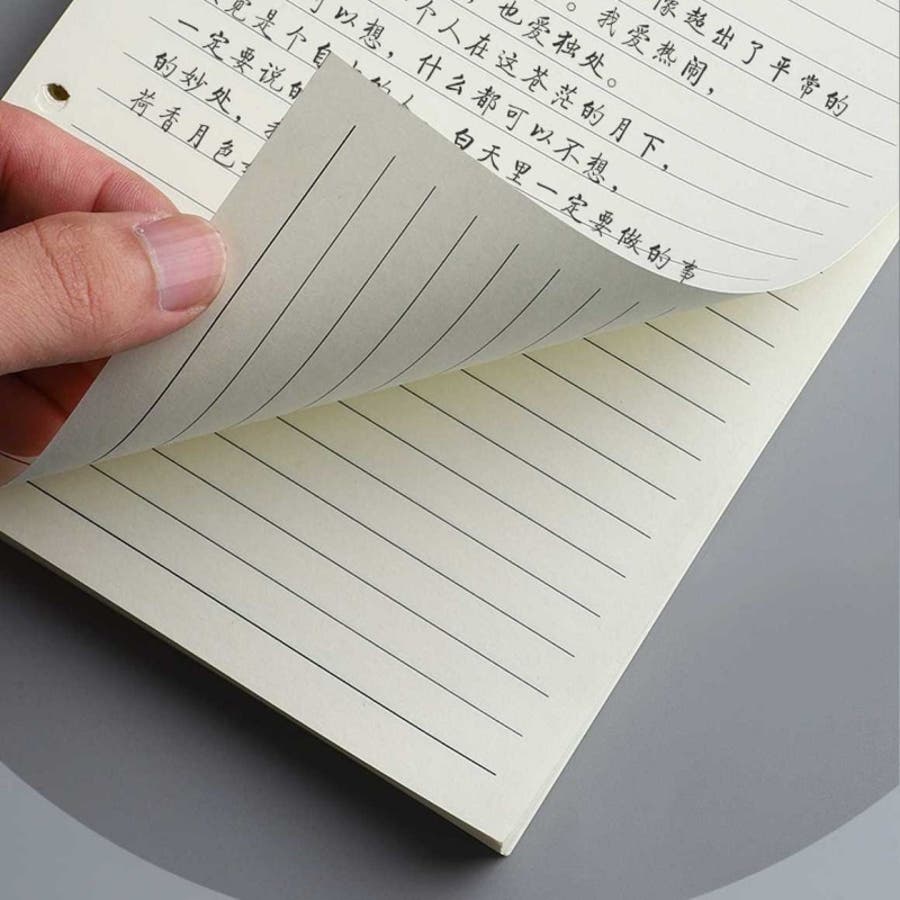 像超出了平常的
。我爱热闹,
也爱独处。
个人在这苍茫的月下,
可以想,什么都可以不想,
觉是个自 白天里一定要做的事
一定要说的
的妙处,
荷香月色